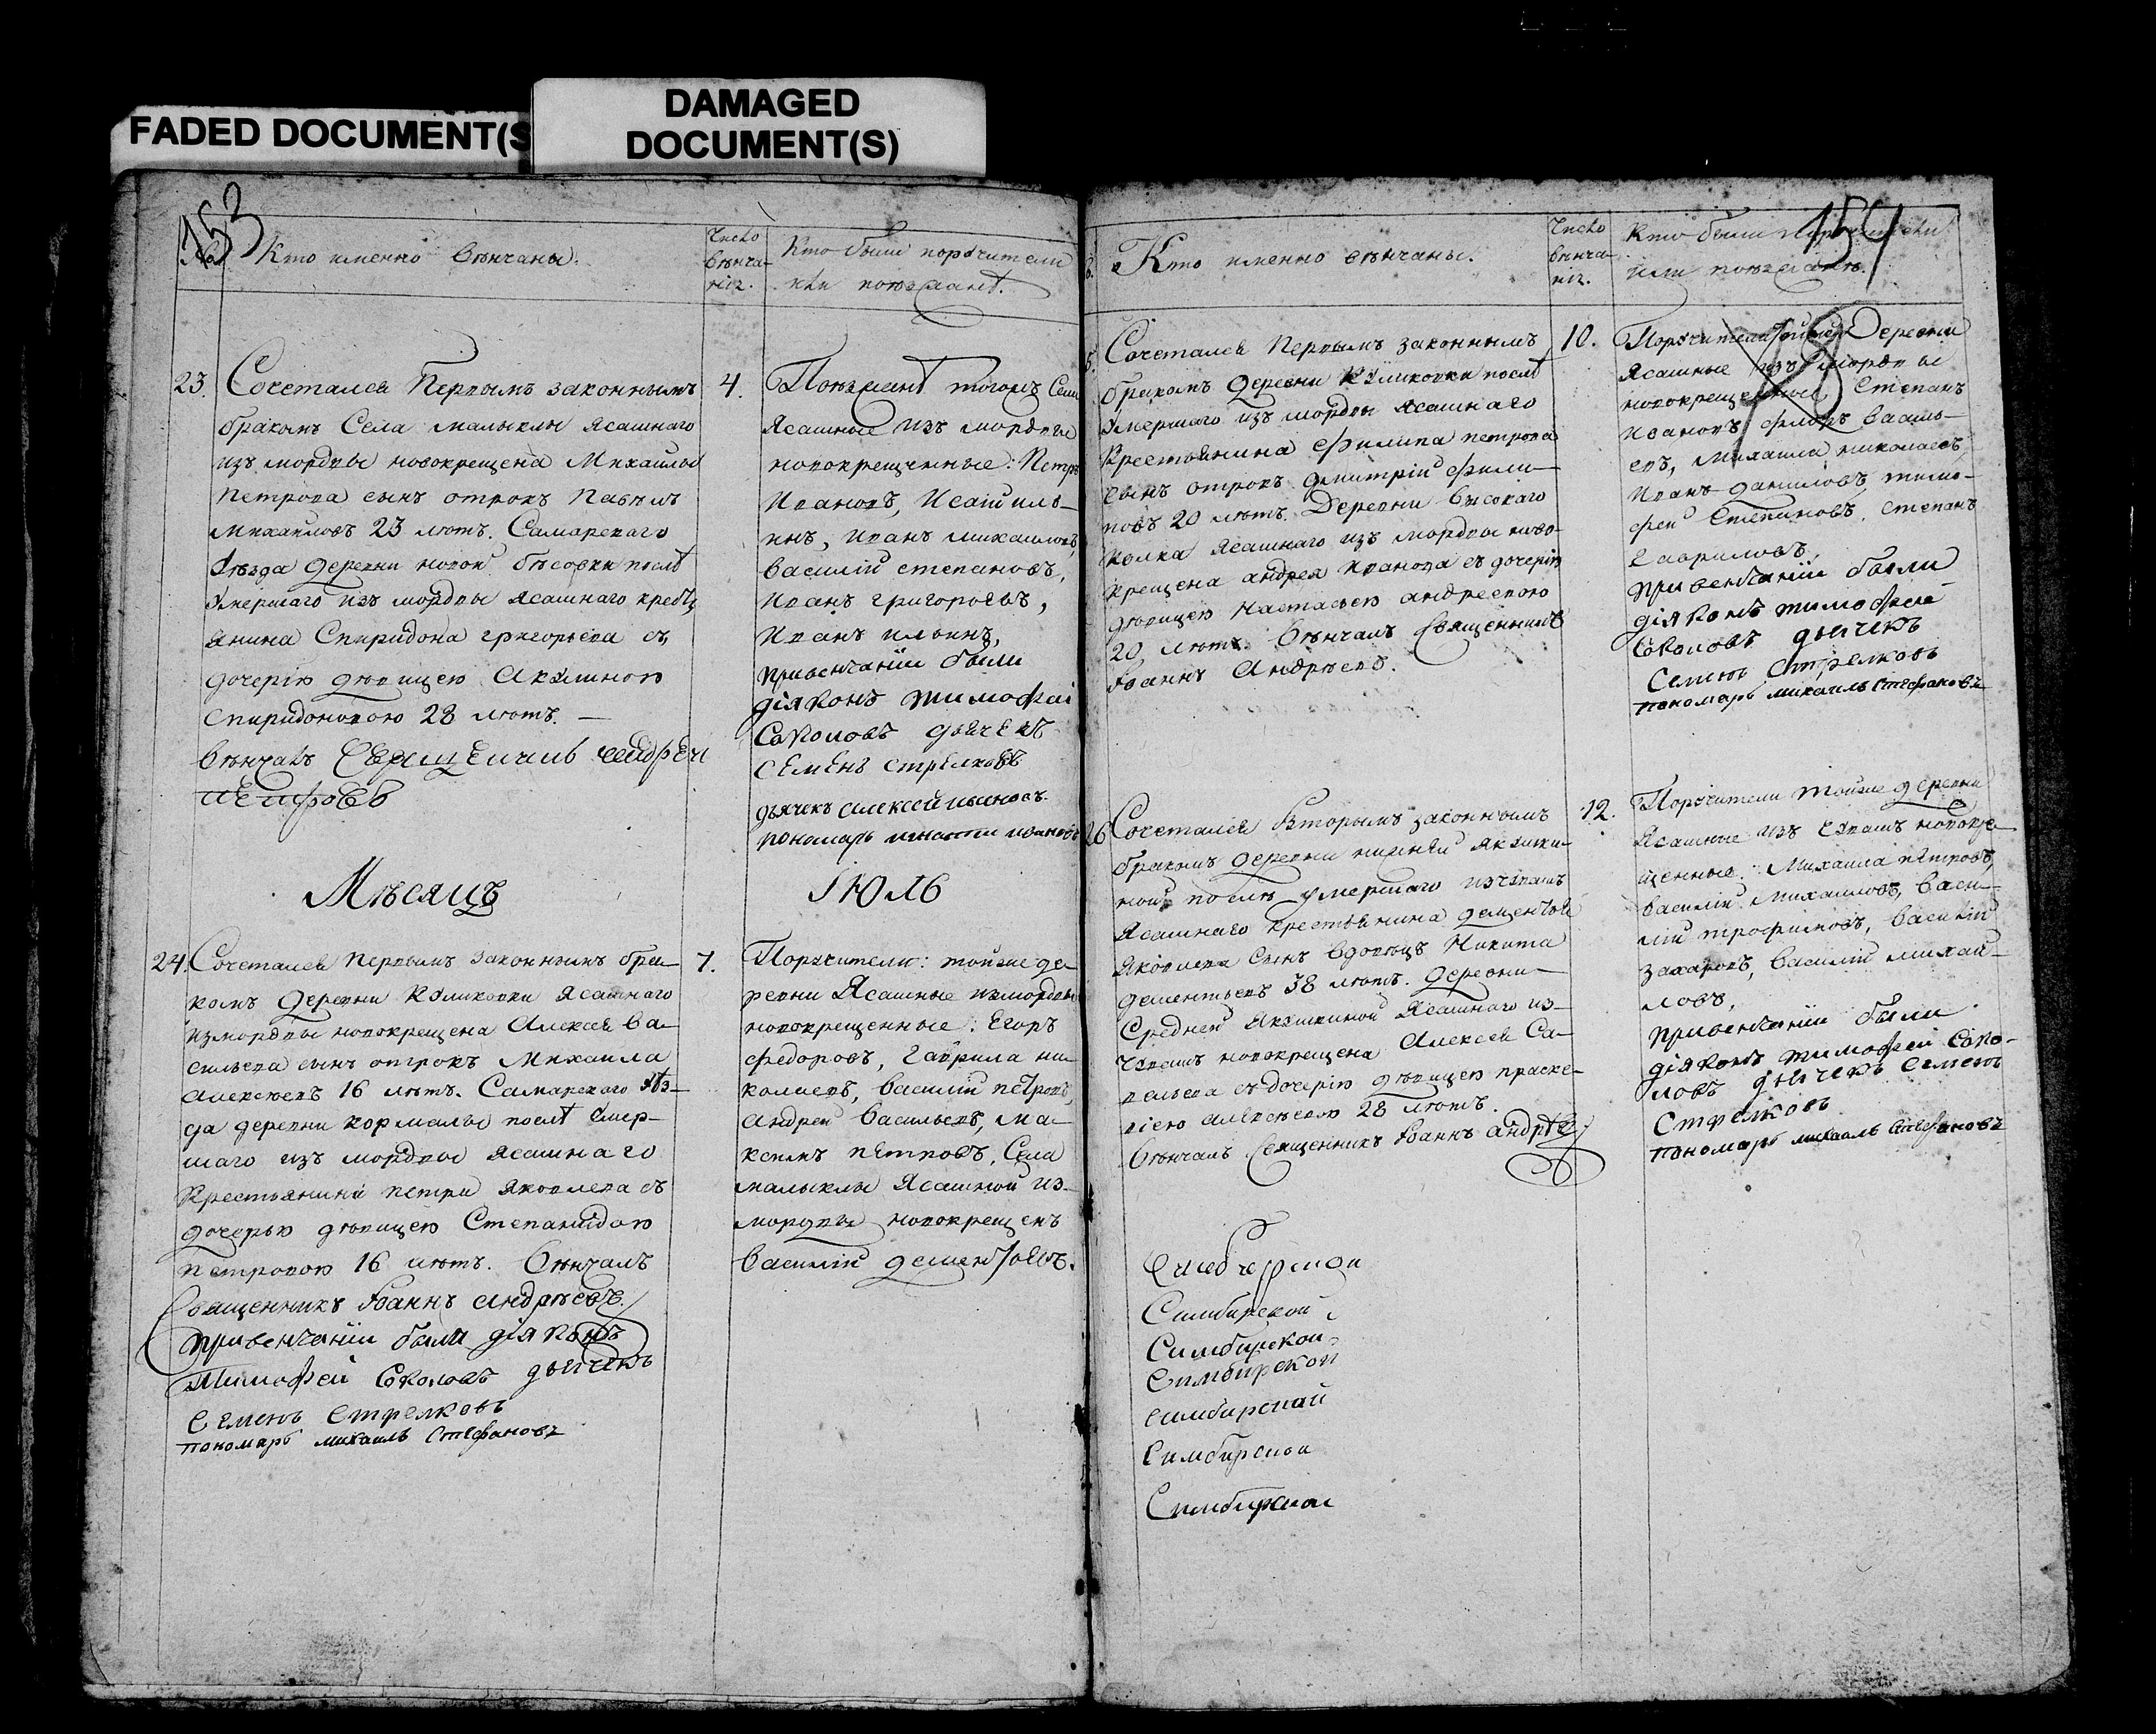 FADED DOCUMENT(S
DAMAGED
DOCUMENT(S)
153
Кто именно вѣнчаны.
Число
вѣнча-
нія.
Кто были поручители
или поѣзжанѣ.
23.
Сочетался Первымъ законнымъ
бракомъ Села малыклы Ясашнаго
изъ мордвы новокрещена Михайлы
Петрова сынъ отрокъ Павелъ
Михайловъ 23 лѣтъ. Самарскаго
уѣзда деревни новой бѣсовки послѣ
умершаго изъ мордвы ясашнаго кресть
янина Спиридона григорьева съ
дочерію дѣвицею Акулиною
Спиридоновою 28 лѣтъ. —
вѣнчалъ
Петровъ
4.
Поѣзжанѣ тогожъ Села
Ясашные изъ мордвы
новокрещенные: Петръ
Ивановъ, Исай иль-
инъ, иванъ михаиловъ,
василій степановъ,
Иванъ григорьевъ,
Иванъ ильинъ,
привенчаніи были
діяконъ тимофеи
Соколовъ дьячекъ
Семенъ стрелковъ
дьячекъ алексей
пономарь игнатеи ивановъ
Мѣсяцъ
Іюль
24.
Сочетался первымъ законнымъ бра-
комъ деревни Куликовки Ясашнаго
измордвы новокрещена Алексея Ва-
сильева сынъ отрокъ Михаила
алексѣевъ 16 лѣтъ. Самарскаго уѣз-
да деревни кормалы послѣ умер-
шаго изъ мордвы ясашнаго
Крестьянина петра яковлева съ
дочерью дѣвицею Степанидою
петровою 16 лѣтъ. Вѣнчалъ
Священникъ Іоаннъ андрѣевъ.
привенчаніи были діяконъ
Тимофеи Соколовъ дьячекъ
Семенъ Стрелковъ
пономарь михаилъ Стефановъ
7.
Поручители: тойже де-
ревни Ясашные измордвы
новокрещенные: Егоръ
федоровъ, Гаврила ни-
колаевъ, василій петровъ,
андрей васильевъ, ма-
ксимъ петровъ, Села
малыклы Ясашной из-
мордвы новокрещенъ
василій дементьевъ.
154
Кто именно вѣнчаны.
Число
вѣнча-
нія.
Кто были поручители
или поѣзжанѣ.
5.
Сочетался Первымъ законнымъ
бракомъ деревни Куликовки послѣ
умершаго изъ мордвы ясашнаго
Крестьянина Филипа петрова
сынъ отрокъ димитрій фили-
повъ 20 лѣтъ. Деревни высокаго
колка ясашнаго изъ мордвы ново-
крещена андрея иванова съ дочерію
дѣвицею Настасьею андреевою
20 лѣтъ. вѣнчалъ Священникъ
Іоаннъ Андрѣевъ.
10.
Поручители тойже Деревни
ясашные изъ мордвы
новокрещенные Степанъ
Ивановъ, флоръ василь-
евъ, Михаила николаевъ,
Иванъ даниловъ, тимо-
фей Степановъ, степанъ
Гавриловъ,
привенчаніи были
діяконъ тимофеи
Соколовъ дьячекъ
Семенъ Стрелковъ
пономарь михаилъ Стефановъ
26
Сочетался Вторымъ законнымъ
бракомъ деревни нижней якушки-
ной послѣ умершаго изчувашъ
Ясашнаго крестьянина дементья
яковлева Сынъ вдовецъ Никита
дементьевъ 38 лѣтъ. деревни
Средней Якушкиной Ясашнаго из-
чувашъ новокрещена Алексея Са-
вельева съдочерію дѣвицею праско-
віею алексѣевою 28 лѣтъ.
Вѣнчалъ Священникъ Іоаннъ андрѣе
12.
Поручители тойже деревни
Ясашные изъ чувашъ новокре-
щенные: Михаила петровъ,
василій Михаиловъ, васи-
лій трофимовъ, василій
захаровъ, василій михай-
ловъ,
привенчаніи были
діяконъ тимофеи Соко-
ловъ дьячекъ Семенъ
Стрелковъ
пономарь михаилъ Стефановъ
Симбирской
Симбирской
Симбирской
Симбирской
Симбирской
Симбирской